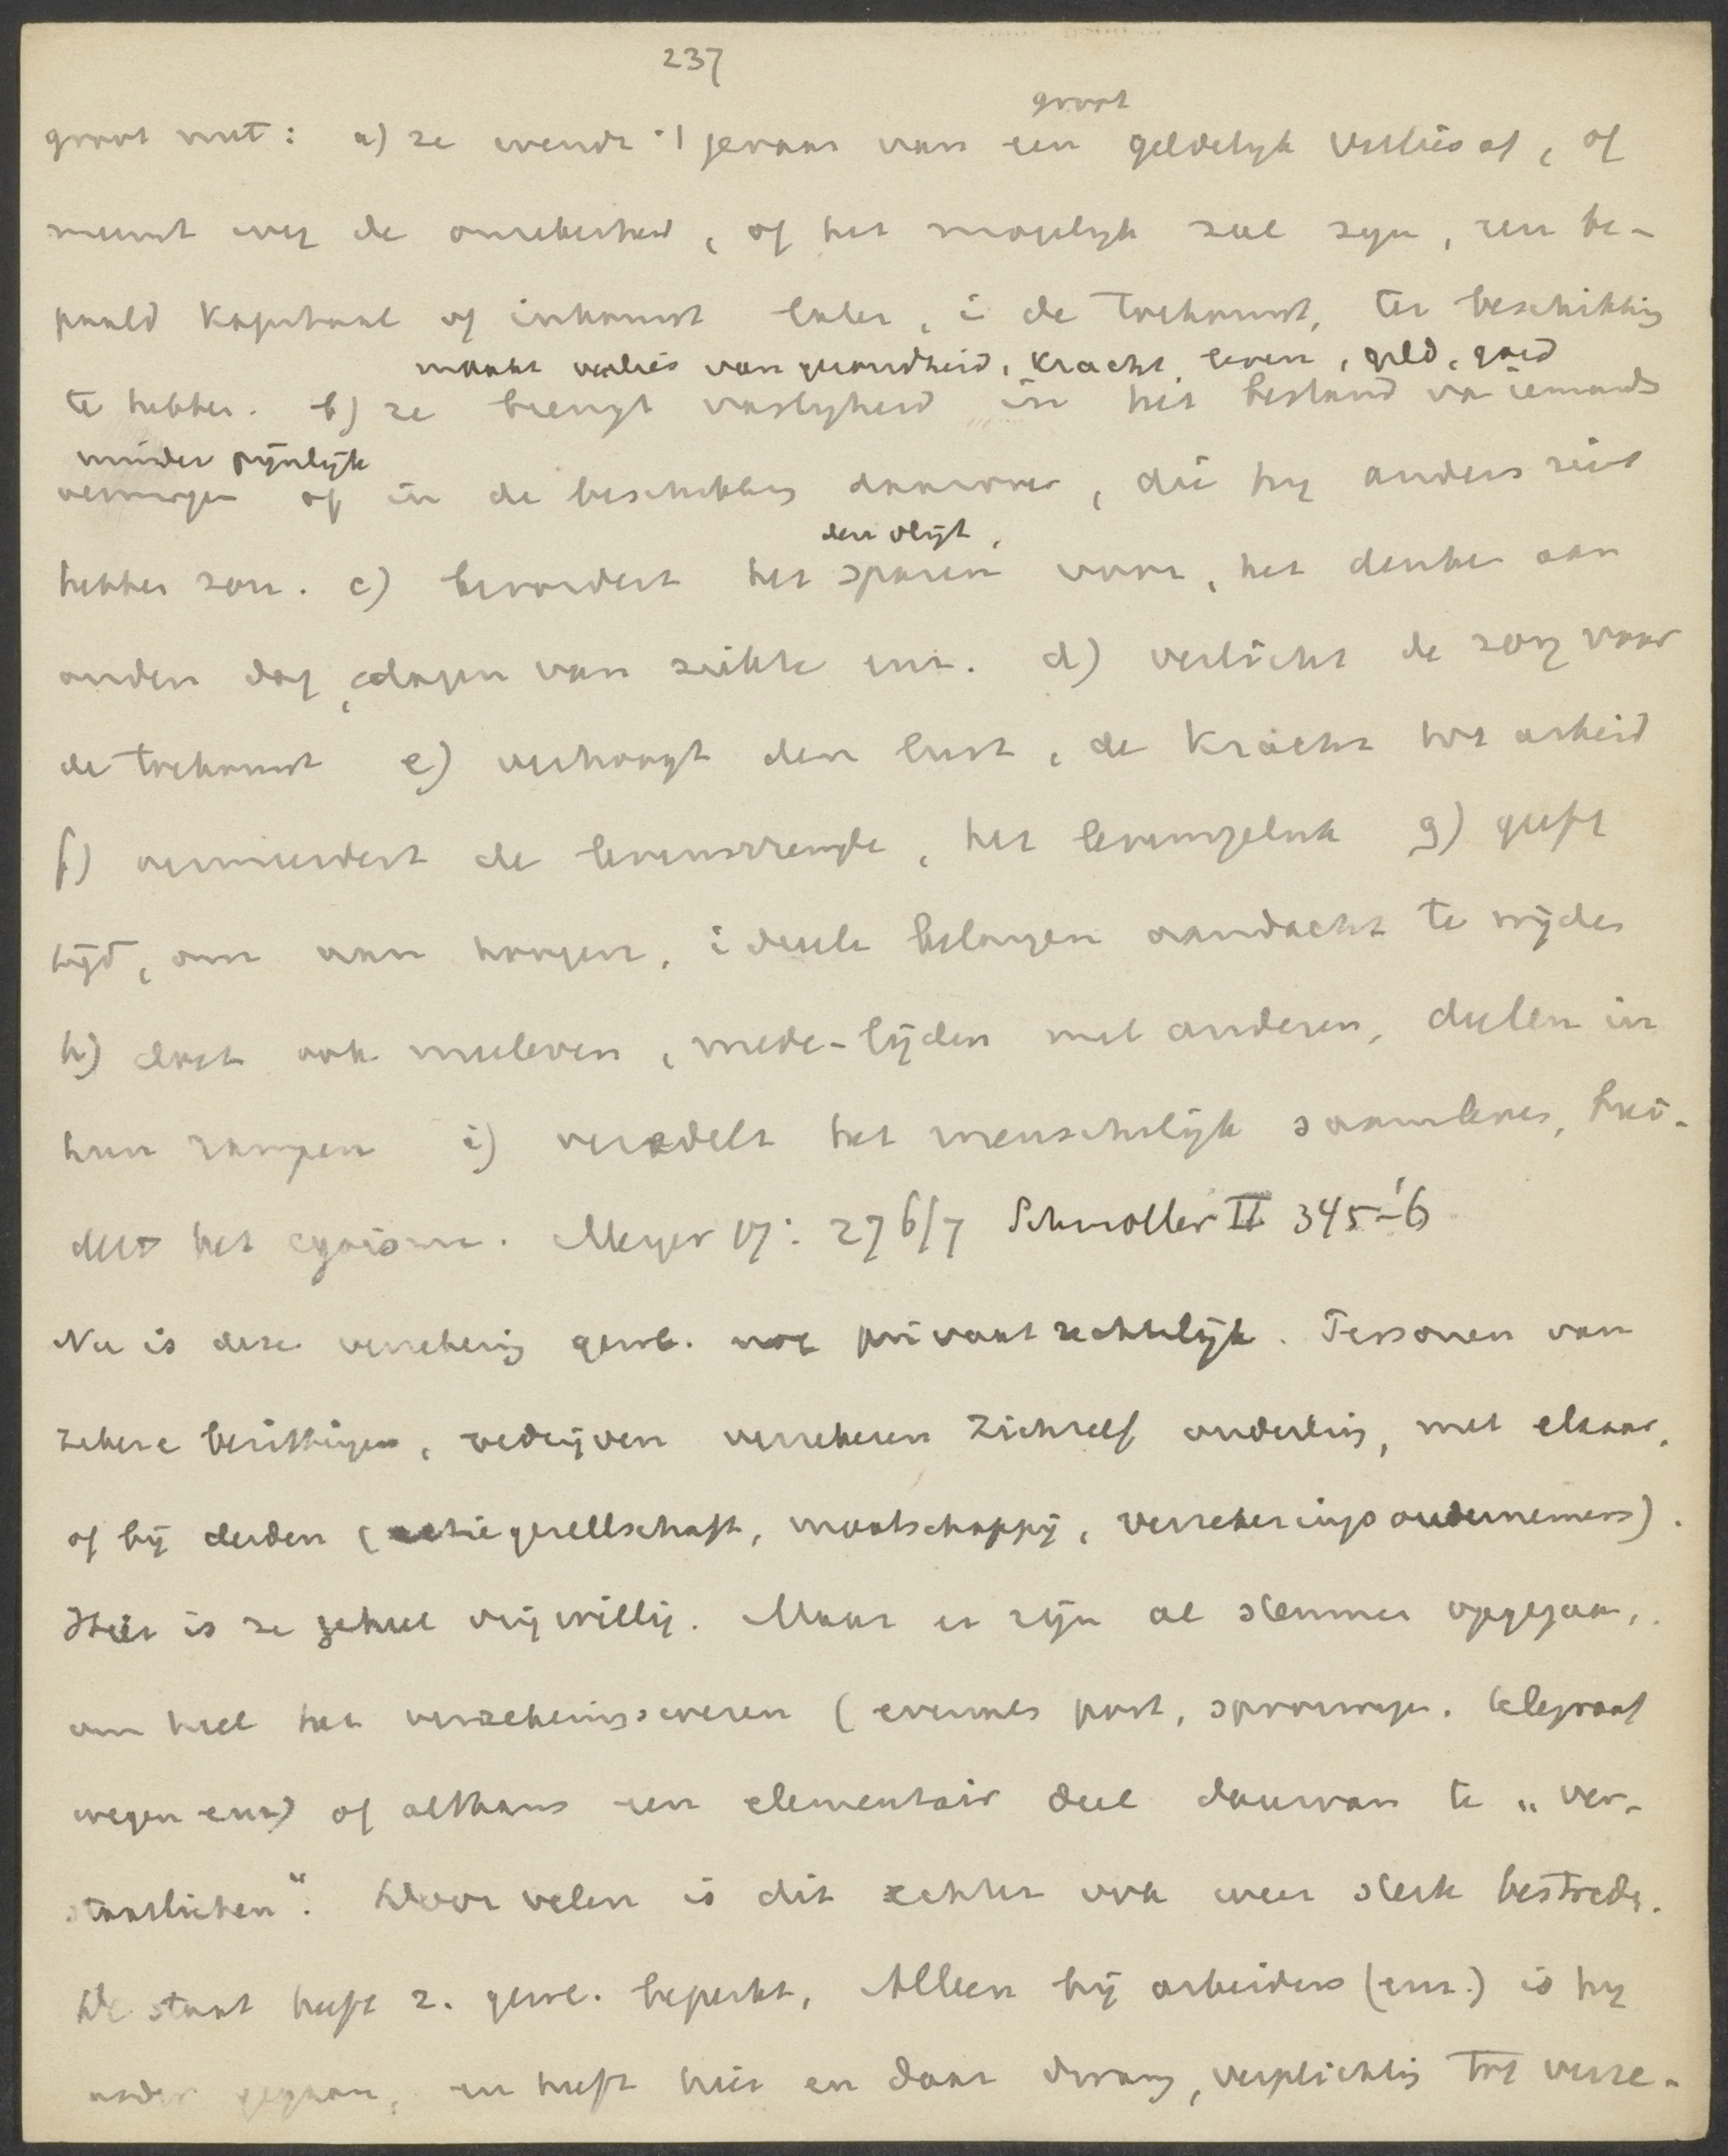 237
groot
groot nut: a) ze wendt 't gevaar van een geldelijk verlies af, of
neemt weg de onzekerheid, of het mogelijk zal zijn, een be-
paald kapitaal of inkomst later, in de toekomst, ter beschikking
maakt verlies van gezondheid, kracht, leven, geld, goed
te hebben. b) ze brengt vastigheid in het bestand van iemands
minder pijnlijk
vermogen of in de beschikking daarover, die hij anders niet
den vlijt,
hebben zou. c) bevordert het sparen voor, het denken aan
ouden dag, dagen van ziekte enz. d) verlicht de zorg voor
de toekomst e) verhoogt den lust, de kracht tot arbeid
f) vermeerdert de levensvreugde, het levensgeluk g) geeft
tijd, om aan hoogere, ideeele belangen aandacht te wijden
h) doet ook meeleven, mede-lijden met anderen, deelen in
hun rampen i) veredelt het menschelijk saamleven, bréi-
delt het egoisme. Meyer 17: 276/7 Schmoller II 345-'6
Nu is deze verzekering gew. nog privaatrechtelijk. Personen van
zekere bezittingen, bedrijven verzekeren zichzelf onderling, met elkaar,
of bij derden (actiegesellschaft, maatschappij, verzekeringsondernemers).
Hier is ze geheel vrijwillig. Maar er zijn al stemmen opgegaan,
om heel het verzekeringswezen (evenals post, spoorwegen, telegraaf
wegen enz) of althans een elementair deel daarvan te „ver-
staatlichen“. Door velen is dit echter ook weer sterk bestreden.
De staat heeft z. gew. beperkt, Alleen bij arbeiders (enz.) is hij
verder gegaan, en heeft hier en daar dwang, verplichting tot verze-